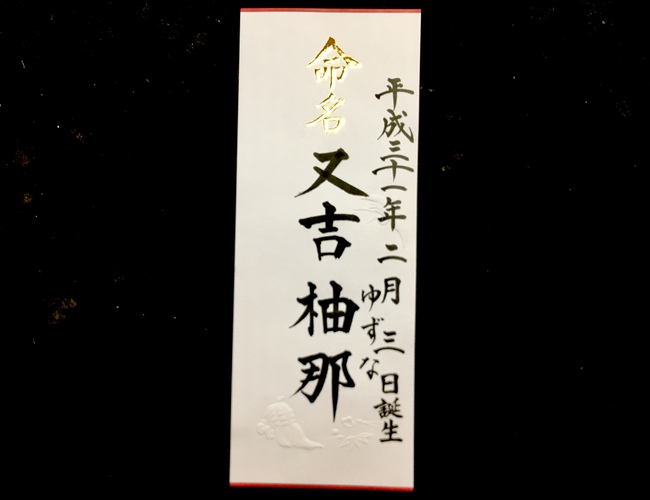 平成三十一年 二月 三日誕生
命名
又吉 柚那
ゆずな